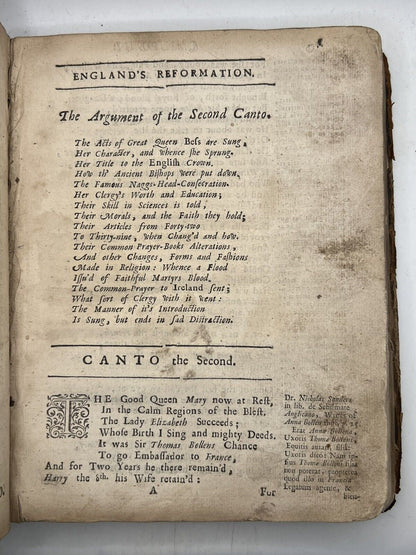 ENGLAND'S REFORMATION.
The Argument of the Second Canto.
The Acts of Great Queen Bess are Sung,
Her Character, and whence she Sprung.
Her Title to the English Crown.
How th' Ancient Bishops were put down,
The Famous Naggs-Head-Consecration.
Her Clergy's Worth and Education;
Their Skill in Sciences is told,
Their Morals, and the Faith they hold;
Their Articles from Forty-two
To Thirty-nine, when Chang'd and how.
Their Common Prayer-Books Alterations,
And other Changes, Forms and Fashions
Made in Religion: Whence a Flood
Issu'd of Faithful Martyrs Blood.
The Common-Prayer to Ireland sent;
What sort of Clergy with it went:
The Manner of it's Introduction
Is Sung, but ends in sad Distraction.
CANTO the Second.
THE Good Queen Mary now at Rest,
In the Calm Regions of the Blest.
The Lady Elizabeth Succeeds;
Whose Birth I Sing and mighty Deeds.
It was Sir Thomas Bollens Chance
To go Embassador to France,
And for Two Years he there remain'd,
Harry the 8th. his Wife retain'd:
A
For
Dr. Nicholas Sanders
in lib. de Schismate
Anglicano, Writes of
Anna Bollen thus,
Erat Anna Bollena,
Uxoris Thomæ Bolleni,
Equitis aurati, filia:
Uxoris dico: Nam ip-
sius Thomæ Bolleni filia
non poterat, propterea
quod illo in Francia
Legatum agente, &